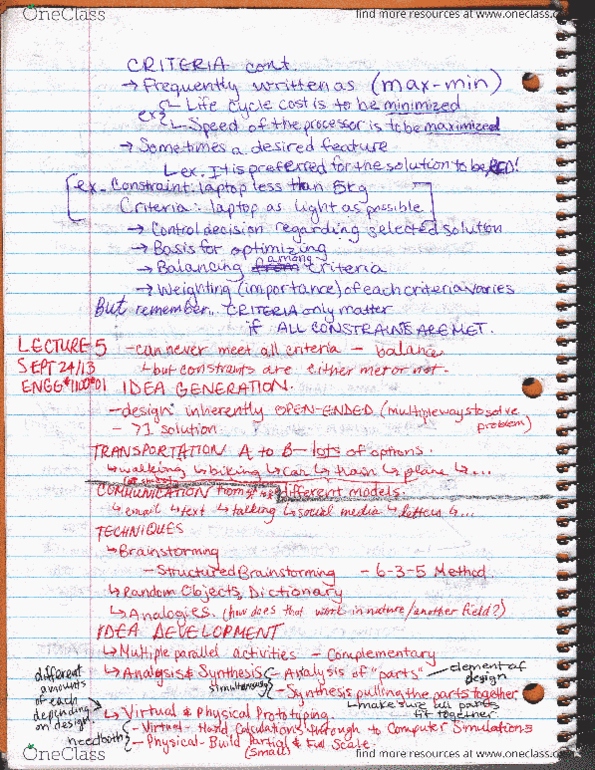 OneClass
find more resources at www.oneclass.com
CRITERIA cont.
→ Frequently written as (max-min)
ex { Life cycle cost is to be minimized
Speed of the processor is to be maximized
→ Sometimes a desired feature
ex. It is preferred for the solution to be RED!
ex. Constraint: laptop less than 5kg
Criteria: laptop as light as possible
→ Control decision regarding selected solution
→ Basis for optimizing
→ Balancing among criteria
→ Weighting (importance) of each criteria varies
But remember.. CRITERIA only matter
if ALL CONSTRAINS ARE MET.
LECTURE 5
SEPT 24/13
ENGG*1100*01
- can never meet all criteria - balance
↳ but constraints are either met or not.
IDEA GENERATION.
- design: inherently OPEN-ENDED (multiple ways to solve problem)
- >1 solution
TRANSPORTATION A to B - lots of options.
↳ walking ↳ biking ↳ car ↳ train ↳ plane ↳ ...
COMMUNICATION from different models.
↳ email ↳ text ↳ talking ↳ social media ↳ letters ↳ ...
TECHNIQUES
↳ Brainstorming
- Structured Brainstorming - 6-3-5 Method.
↳ Random Objects, Dictionary
↳ Analogies. (how does that work in nature/another field?)
IDEA DEVELOPMENT
↳ Multiple parallel activities - Complementary
↳ Analysis & Synthesis { - Analysis of "parts" — element of design
simultaneously
- Synthesis pulling the parts together
↳ make sure all parts fit together.
different amounts of each depending on design
↳ Virtual & Physical Prototyping.
need both { - Virtual - Hand Calculations through to Computer Simulations
- Physical - Build Partial & Full Scale.
(small)
OneClass
find more resources at www.oneclass.com